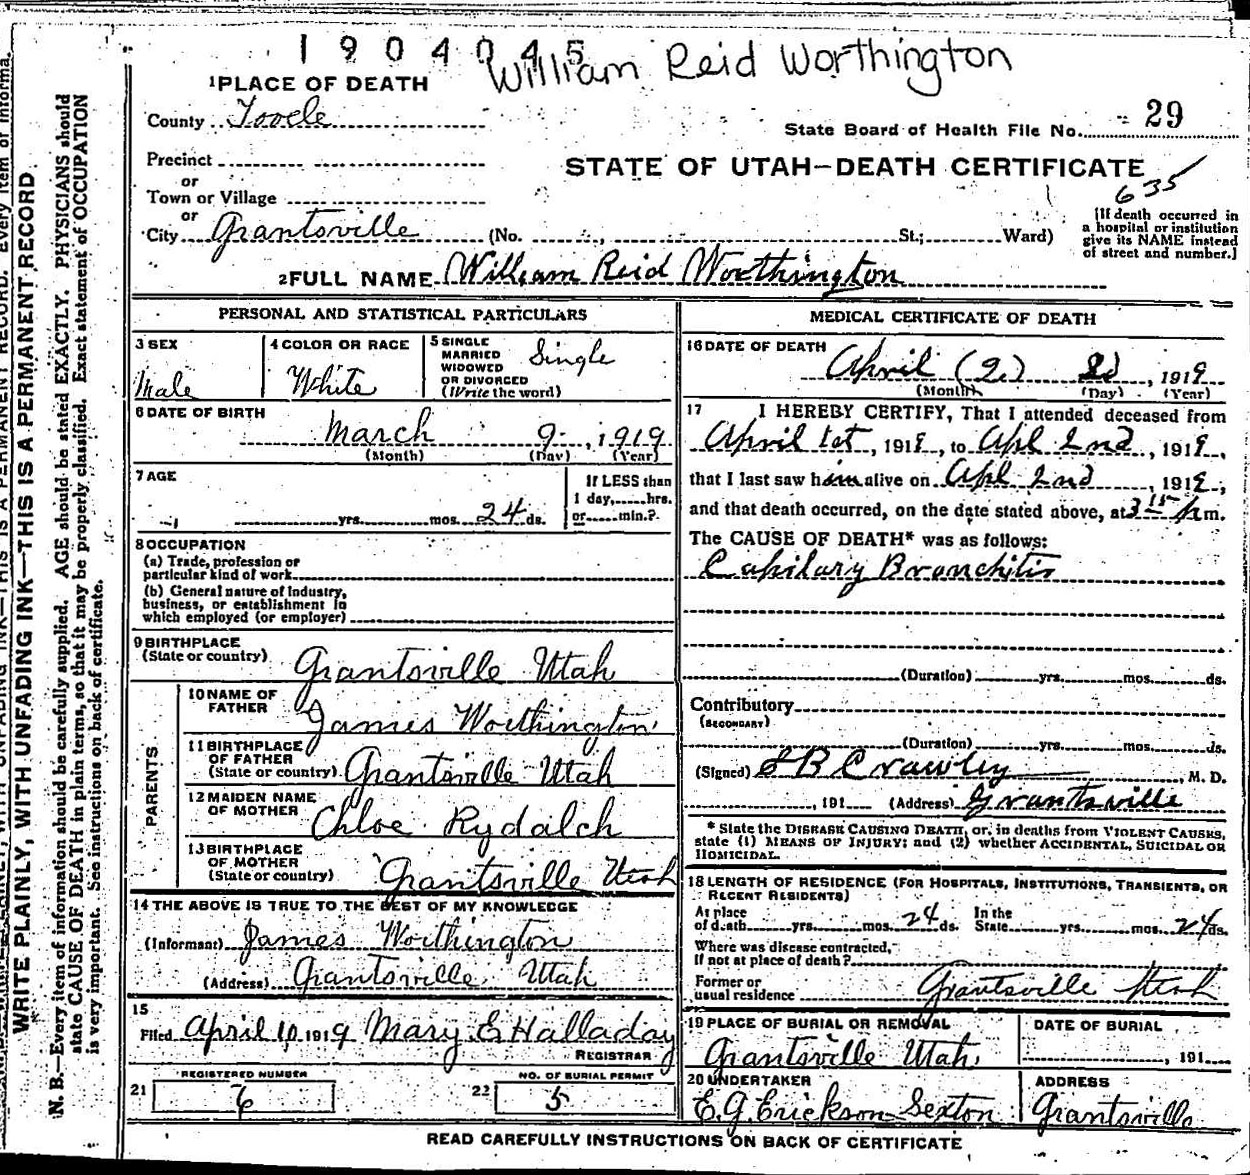 1904045
William Reid Worthington
1 PLACE OF DEATH
County Tooele
State Board of Health File No. 29
Precinct
STATE OF UTAH—DEATH CERTIFICATE
or
Town or Village
635
or
City Grantsville (No. St.; Ward)
[If death occurred in
a hospital or institution
give its NAME instead
of street and number.]
2 FULL NAME William Reid Worthington
PERSONAL AND STATISTICAL PARTICULARS
3 SEX
Male
4 COLOR OR RACE
White
5 SINGLE
MARRIED
WIDOWED
OR DIVORCED
(Write the word)
Single
6 DATE OF BIRTH
March 9, 1919
(Month) (Day) (Year)
7 AGE
yrs. mos. 24 ds.
If LESS than
1 day, hrs.
or min.?
8 OCCUPATION
(a) Trade, profession or
particular kind of work
(b) General nature of Industry,
business, or establishment in
which employed (or employer)
9 BIRTHPLACE
(State or country) Grantsville Utah
PARENTS
10 NAME OF
FATHER
James Worthington
11 BIRTHPLACE
OF FATHER
(State or country) Grantsville Utah
12 MAIDEN NAME
OF MOTHER
Chloe Rydalch
13 BIRTHPLACE
OF MOTHER
(State or country) Grantsville Utah
14 THE ABOVE IS TRUE TO THE BEST OF MY KNOWLEDGE
(Informant) James Worthington
(Address) Grantsville Utah
15
Filed April 10, 1919 Mary E Halladay
REGISTRAR
REGISTERED NUMBER
21 6
NO. OF BURIAL PERMIT
22 5
MEDICAL CERTIFICATE OF DEATH
16 DATE OF DEATH
April (2) 2d, 1919
(Month) (Day) (Year)
17 I HEREBY CERTIFY, That I attended deceased from
April 1st, 1919, to Apl 2nd, 1919,
that I last saw him alive on Apl 2nd, 1919,
and that death occurred, on the date stated above, at 3 15 P m.
The CAUSE OF DEATH* was as follows:
Capilary Bronchitis
(Duration) yrs. mos. ds.
Contributory
(SECONDARY)
(Duration) yrs. mos. ds.
(Signed) B Crawley, M. D.
, 191 (Address) Grantsville
* State the DISEASE CAUSING DEATH, or, in deaths from VIOLENT CAUSES,
state (1) MEANS OF INJURY; and (2) whether ACCIDENTAL, SUICIDAL OR
HOMICIDAL.
18 LENGTH OF RESIDENCE (FOR HOSPITALS, INSTITUTIONS, TRANSIENTS, OR
RECENT RESIDENTS)
At place
of death yrs. mos. 24 ds.
In the
State yrs. mos. 24 ds.
Where was disease contracted,
If not at place of death?
Former or
usual residence Grantsville Utah
19 PLACE OF BURIAL OR REMOVAL
Grantsville Utah
DATE OF BURIAL
, 191
20 UNDERTAKER
E. G. Erickson Sexton
ADDRESS
Grantsville
READ CAREFULLY INSTRUCTIONS ON BACK OF CERTIFICATE
WRITE PLAINLY, WITH UNFADING INK—THIS IS A PERMANENT RECORD.
N. B.—Every item of information should be carefully supplied. AGE should be stated EXACTLY. PHYSICIANS should
state CAUSE OF DEATH in plain terms, so that it may be properly classified. Exact statement of OCCUPATION
is very important. See instructions on back of certificate.